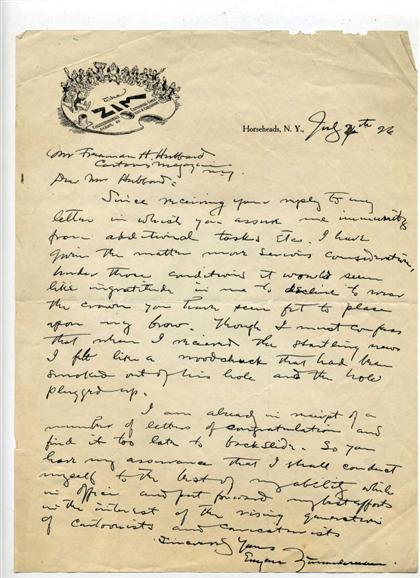 The
ZIM
Horseheads, N. Y., July 24th 26
Mr Freeman H. Hubbard
Cartoons Magazine
NY.
Dear Mr Hubbard:-
Since receiving your reply to my
letter in which you assure me immunity
from additional tasks Etc. I have
given the matter more serious consideration.
Under those conditions it would seem
like ingratitude in me to decline to wear
the crown you have seen fit to place
upon my brow. Though I must confess
that when I received the startling news
I felt like a woodchuck that had been
smoked out of his hole and the hole
plugged up.
I am already in receipt of a
number of letters of congratulation and
find it too late to backslide. So you
have my assurance that I shall conduct
myself to the best of my ability while
in office and put forward my best efforts
in the interest of the rising generation
of cartoonists and caricaturists
Sincerely Yours
Eugene Zimmerman